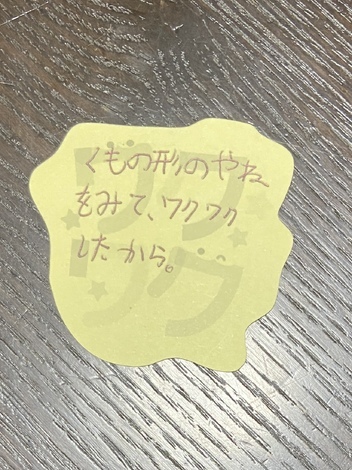 くもの形のやね
をみて、ワクワク
したから。
ワク
ワク